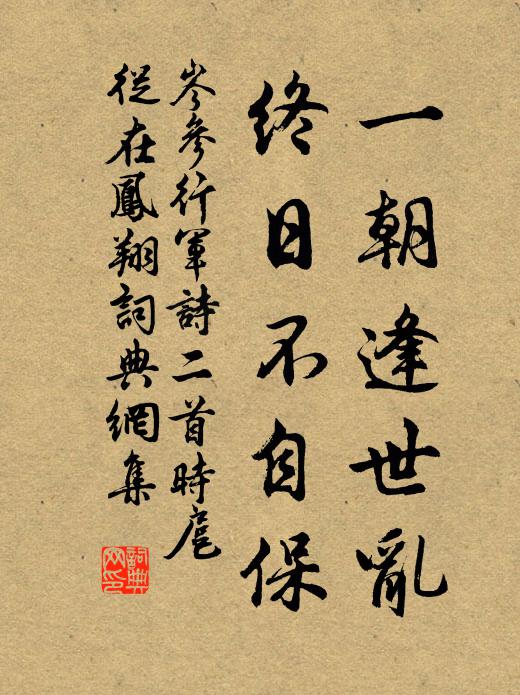 一朝逢世亂
終日不自保
岑參行軍詩二首時扈
從在鳳翔詞典網集
詞典
网印